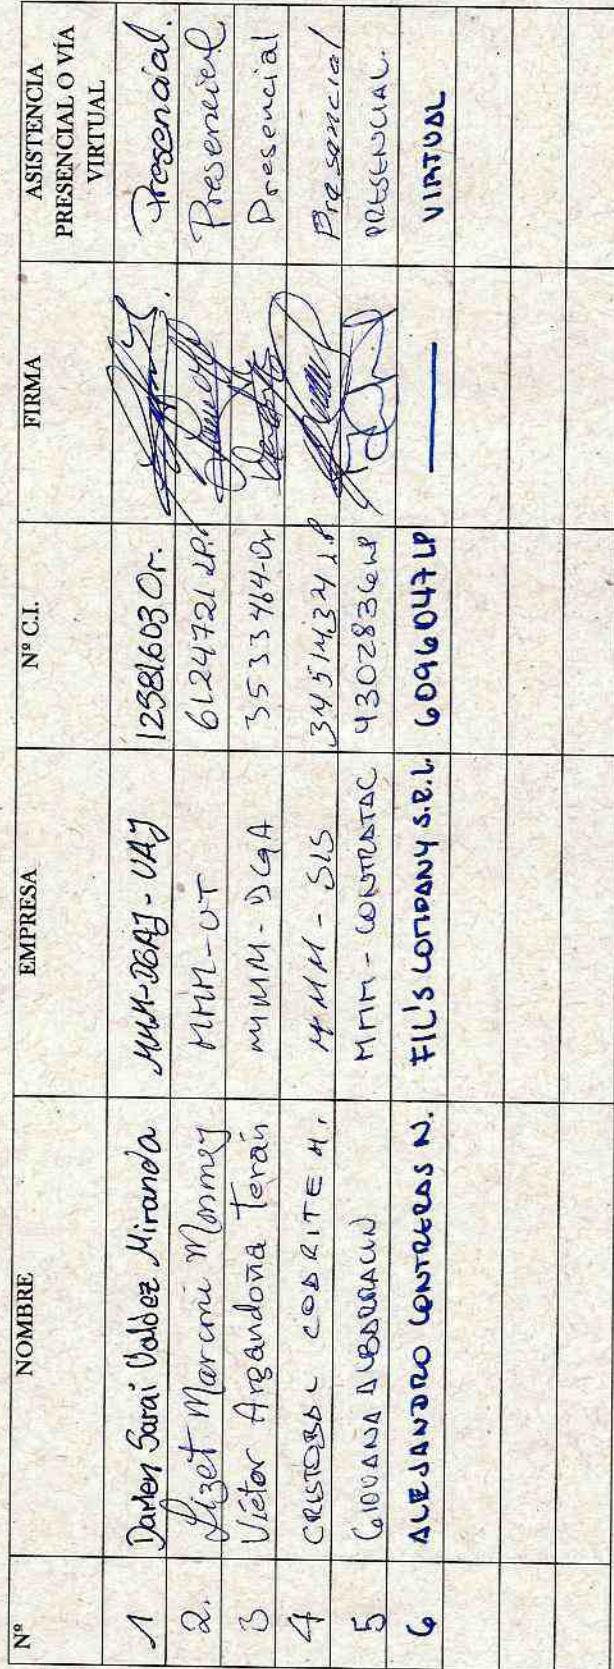 Nº NOMBRE EMPRESA Nº C.I. FIRMA ASISTENCIA PRESENCIAL O VÍA VIRTUAL
1 Darley Sarai Valdez Miranda MMM-DGAJ-UAJ 12581603 Or. Presencial.
2. Lizet Marconi Mormey MMM-UT 6124721 LP. Presencial
3 Victor Argandoña Terán MMM-DGA 3533464-Or Presencial
4 CRISTOBAL COARITE M. MMM-SIS 3451434 LP Presencial
5 GIOVANA ALBARRACIN MMM-CONTRATAC 4302836 LP PRESENCIAL.
6 ALEJANDRO CONTRERAS N. FIL'S COMPANY S.R.L. 6096047 LP VIRTUAL